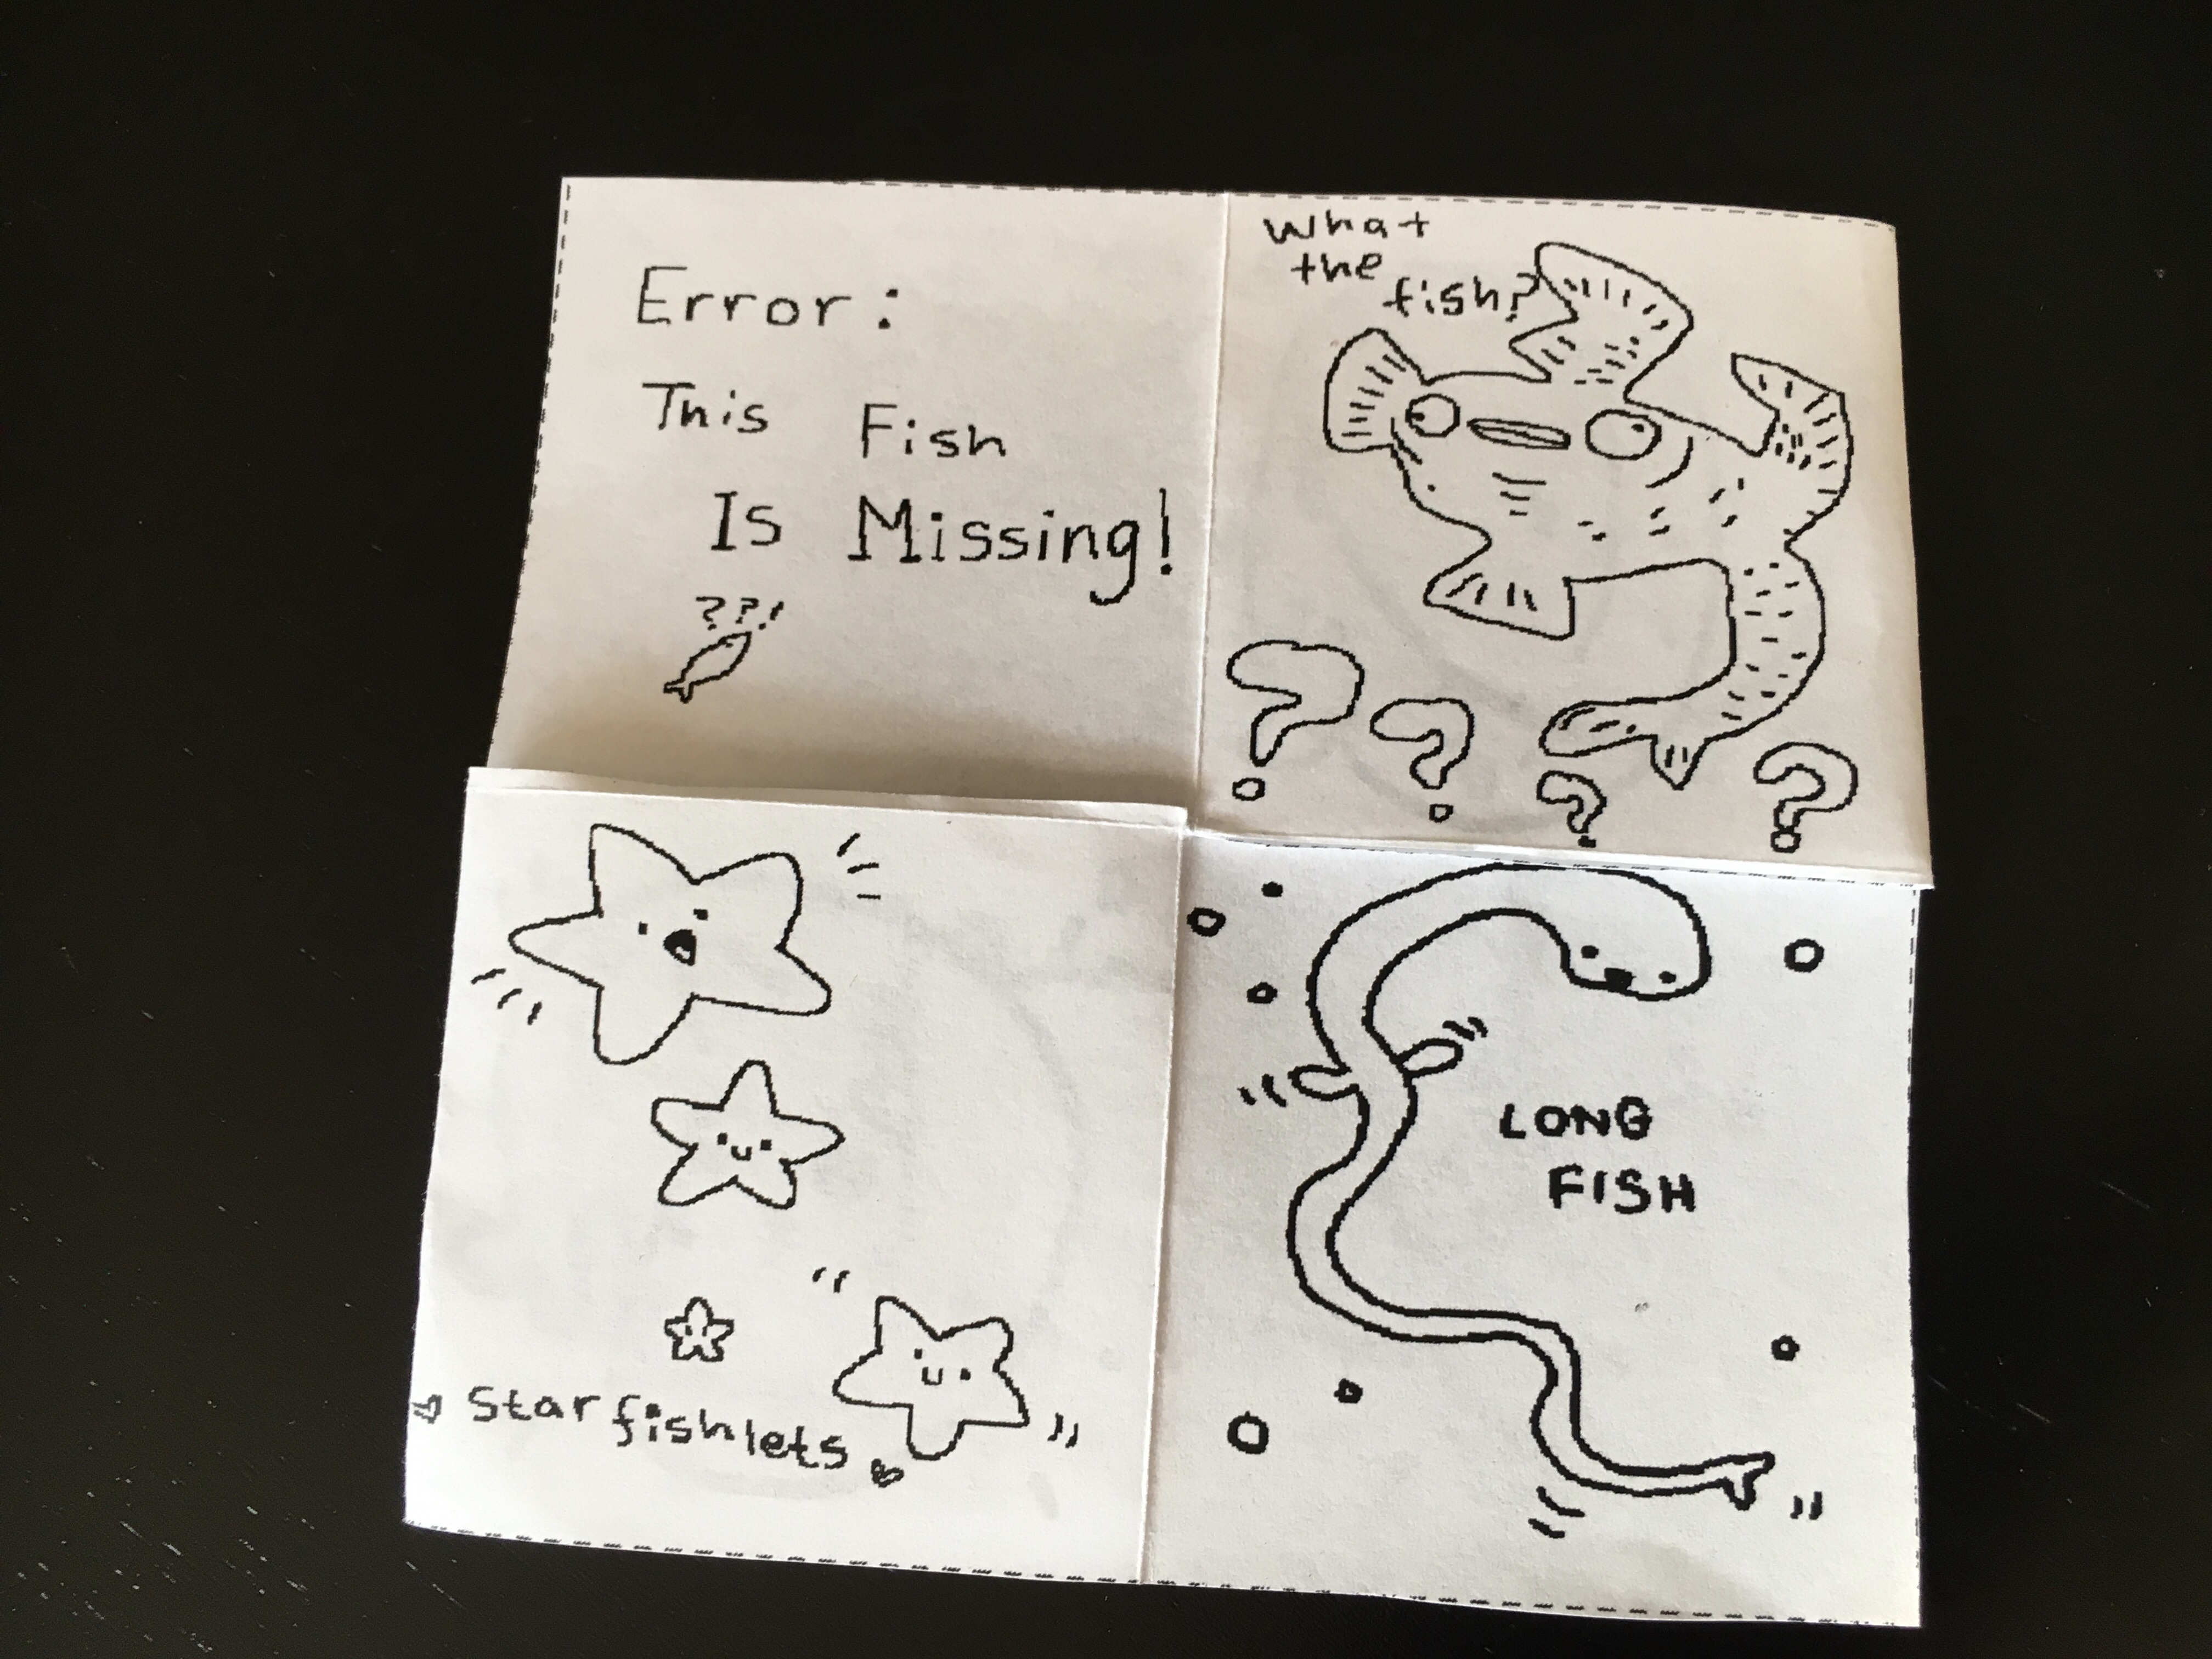 Error:
This Fish
Is Missing!
??!
What
the
fish?
? ? ? ?
Starfishlets
LONG
FISH